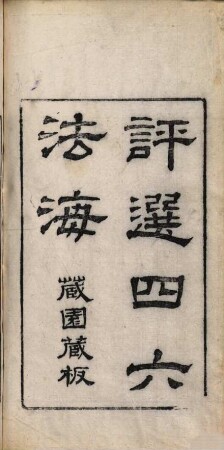 評選四六
法海
藏園藏板